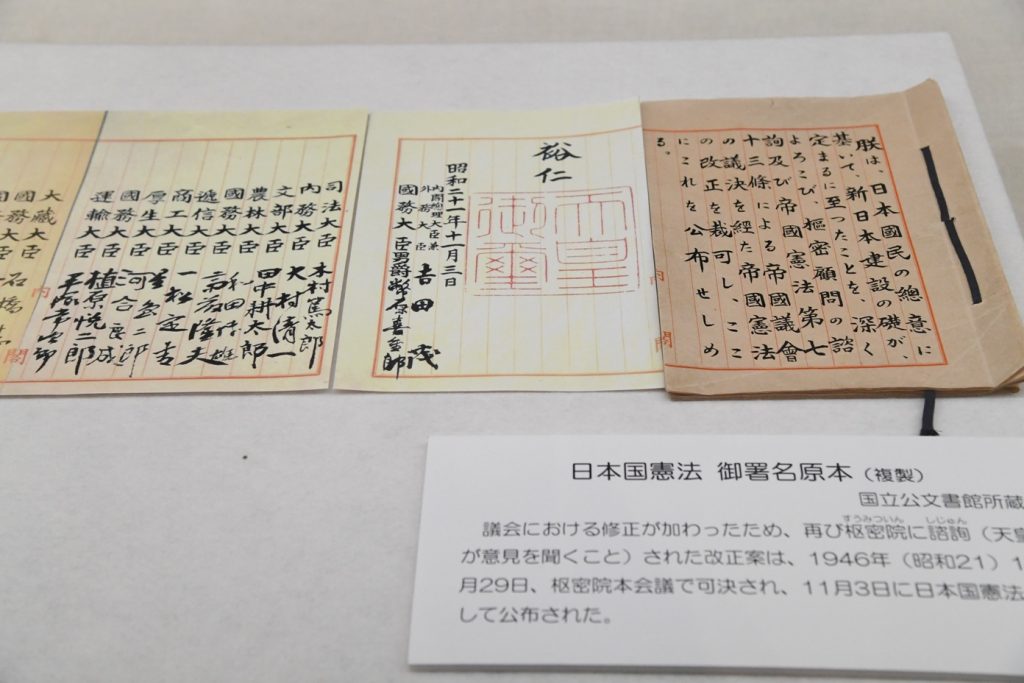 朕は、日本國民の総意に
基いて、新日本建設の礎が、
定まるに至つたことを、深く
よろこび、樞密顧問の諮
詢及び帝國憲法第七
十三條による帝國議會
の議決を経た帝國憲法
の改正を裁可し、ここ
にこれを公布せしめ
る。
内閣
裕仁
天皇御璽
昭和二十一年十一月三日
内閣総理大臣兼
外務大臣 吉田茂
國務大臣男爵幣原喜重郎
司法大臣 木村篤太郎
内務大臣 大村清一
文部大臣 田中耕太郎
農林大臣 和田博雄
國務大臣 斎藤隆夫
逓信大臣 一松定吉
商工大臣 星島二郎
厚生大臣 河合良成
國務大臣 植原悦二郎
運輸大臣 平塚常次郎
内閣
大藏大臣 石橋
國務大臣
日本国憲法 御署名原本（複製）
国立公文書館所蔵
議会における修正が加わったため、再び枢密院に諮詢（天皇
すうみついん しじゅん
が意見を聞くこと）された改正案は、1946年（昭和21）1
月29日、枢密院本会議で可決され、11月3日に日本国憲法
して公布された。